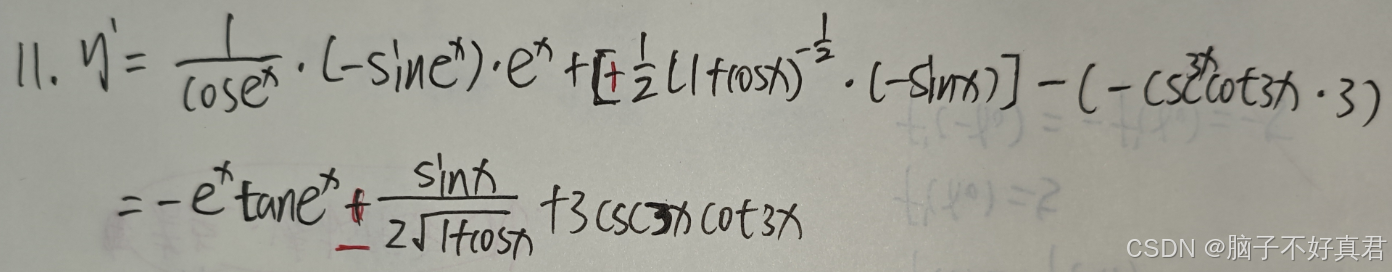 11. y' = 1/cose^x · (-sine^x) · e^x + [+ 1/2 (1+cosx)^(-1/2) · (-sinx)] - (-csc3xcot3x · 3)
= -e^x tane^x - sinx/(2√(1+cosx)) + 3csc3xcot3x
CSDN @脑子不好真君